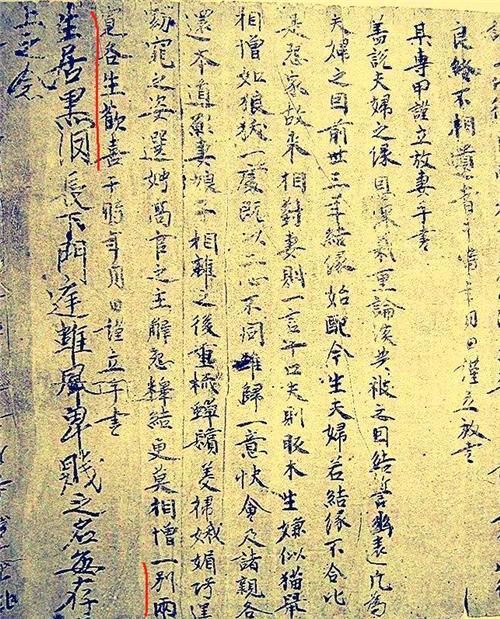 良緣不相遺者于時年月日謹立放書
某專甲謹立放妻手書
蓋說夫婦之緣恩深義重論談共被之因結誓幽遠凡為
夫婦之因前世三年結緣始配今生夫婦若結緣不合比
是怨家故來相對妻則一言十口夫則販木生嫌似猫鼠
相憎如狼狖一處既以二心不同難歸一意快會及諸親各
還本道願妻娘子相離之後重梳蟬鬢美掃娥媚巧逞
窈窕之姿選娉高官之主解怨釋結更莫相憎一別兩
寬各生歡喜于時年月日謹立手書
生居黑長下門雖卑賤之名每存
上之念